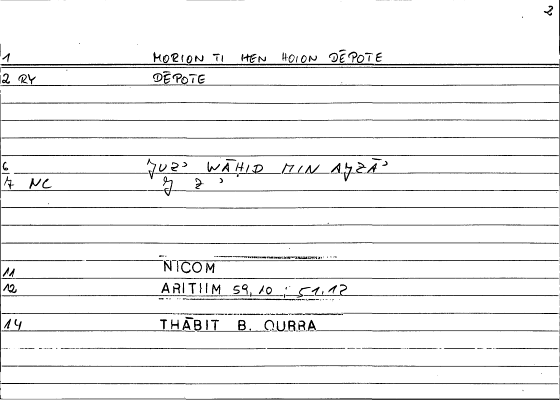 2
1 MORION TI HEN HOION DĒPOTE
2 RY DĒPOTE
6 ǧUZʾ WĀḤID MIN AǧZĀʾ
7 NC ǧ Z ʾ
11 NICOM
12 ARITHM 59,10 ; 51,12
14 THĀBIT B. QURRA